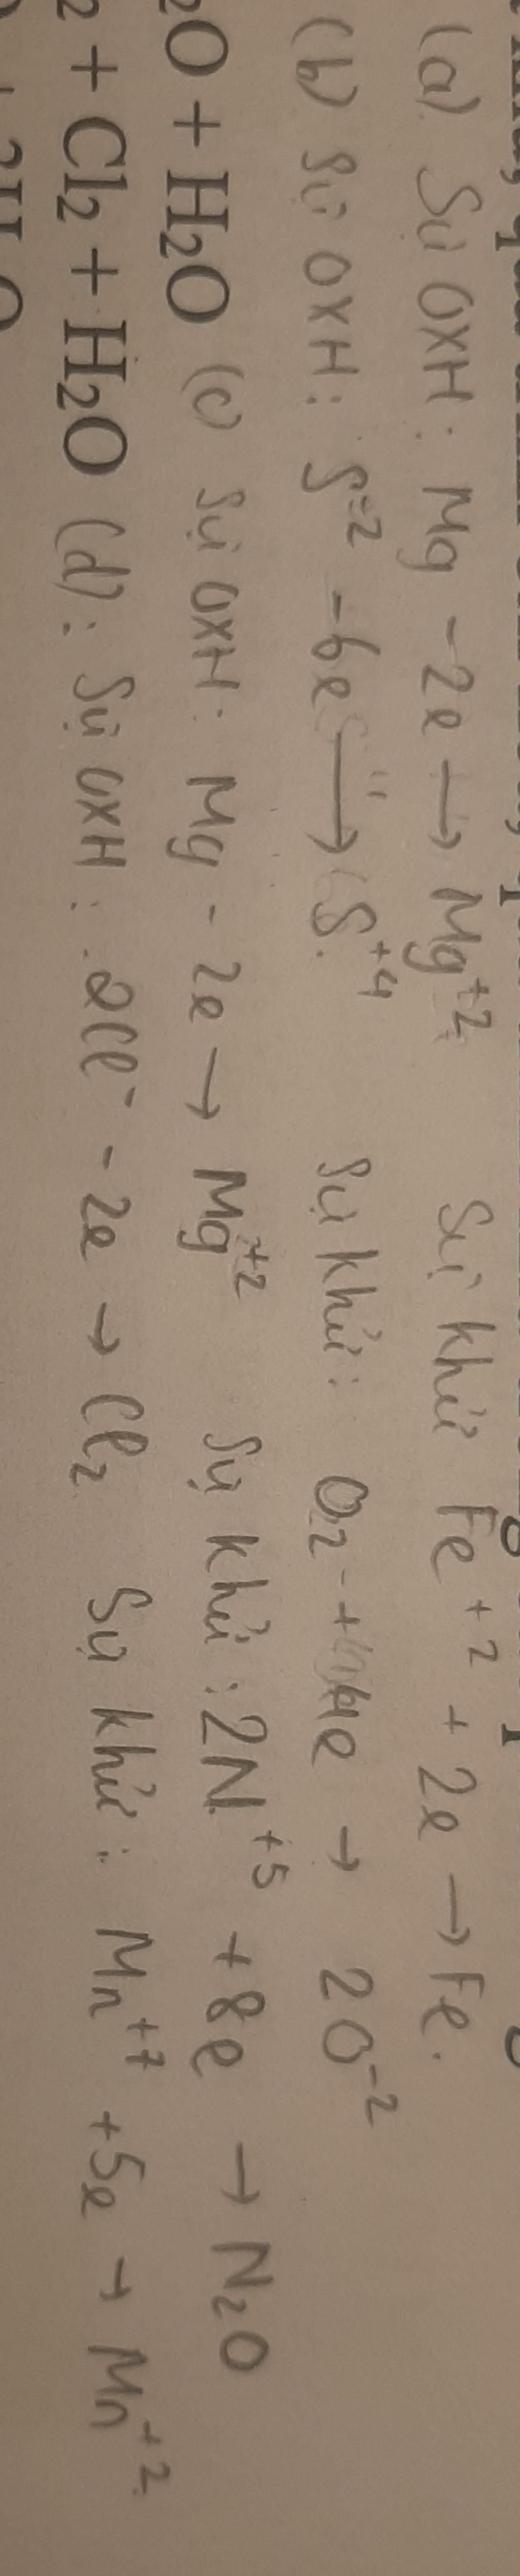 (a) Sự OXH: Mg - 2e → Mg⁺² Sự khử Fe⁺² + 2e → Fe.
(b) Sự OXH: S⁻² - 6e → S⁺⁴ Sự khử: O₂ + 4e → 2O⁻²
₂O + H₂O (c) Sự OXH: Mg - 2e → Mg⁺² Sự khử: 2N⁺⁵ + 8e → N₂O
₂ + Cl₂ + H₂O (d): Sự OXH: 2Cl⁻ - 2e → Cl₂ Sự khử: Mn⁺⁷ + 5e → Mn⁺²